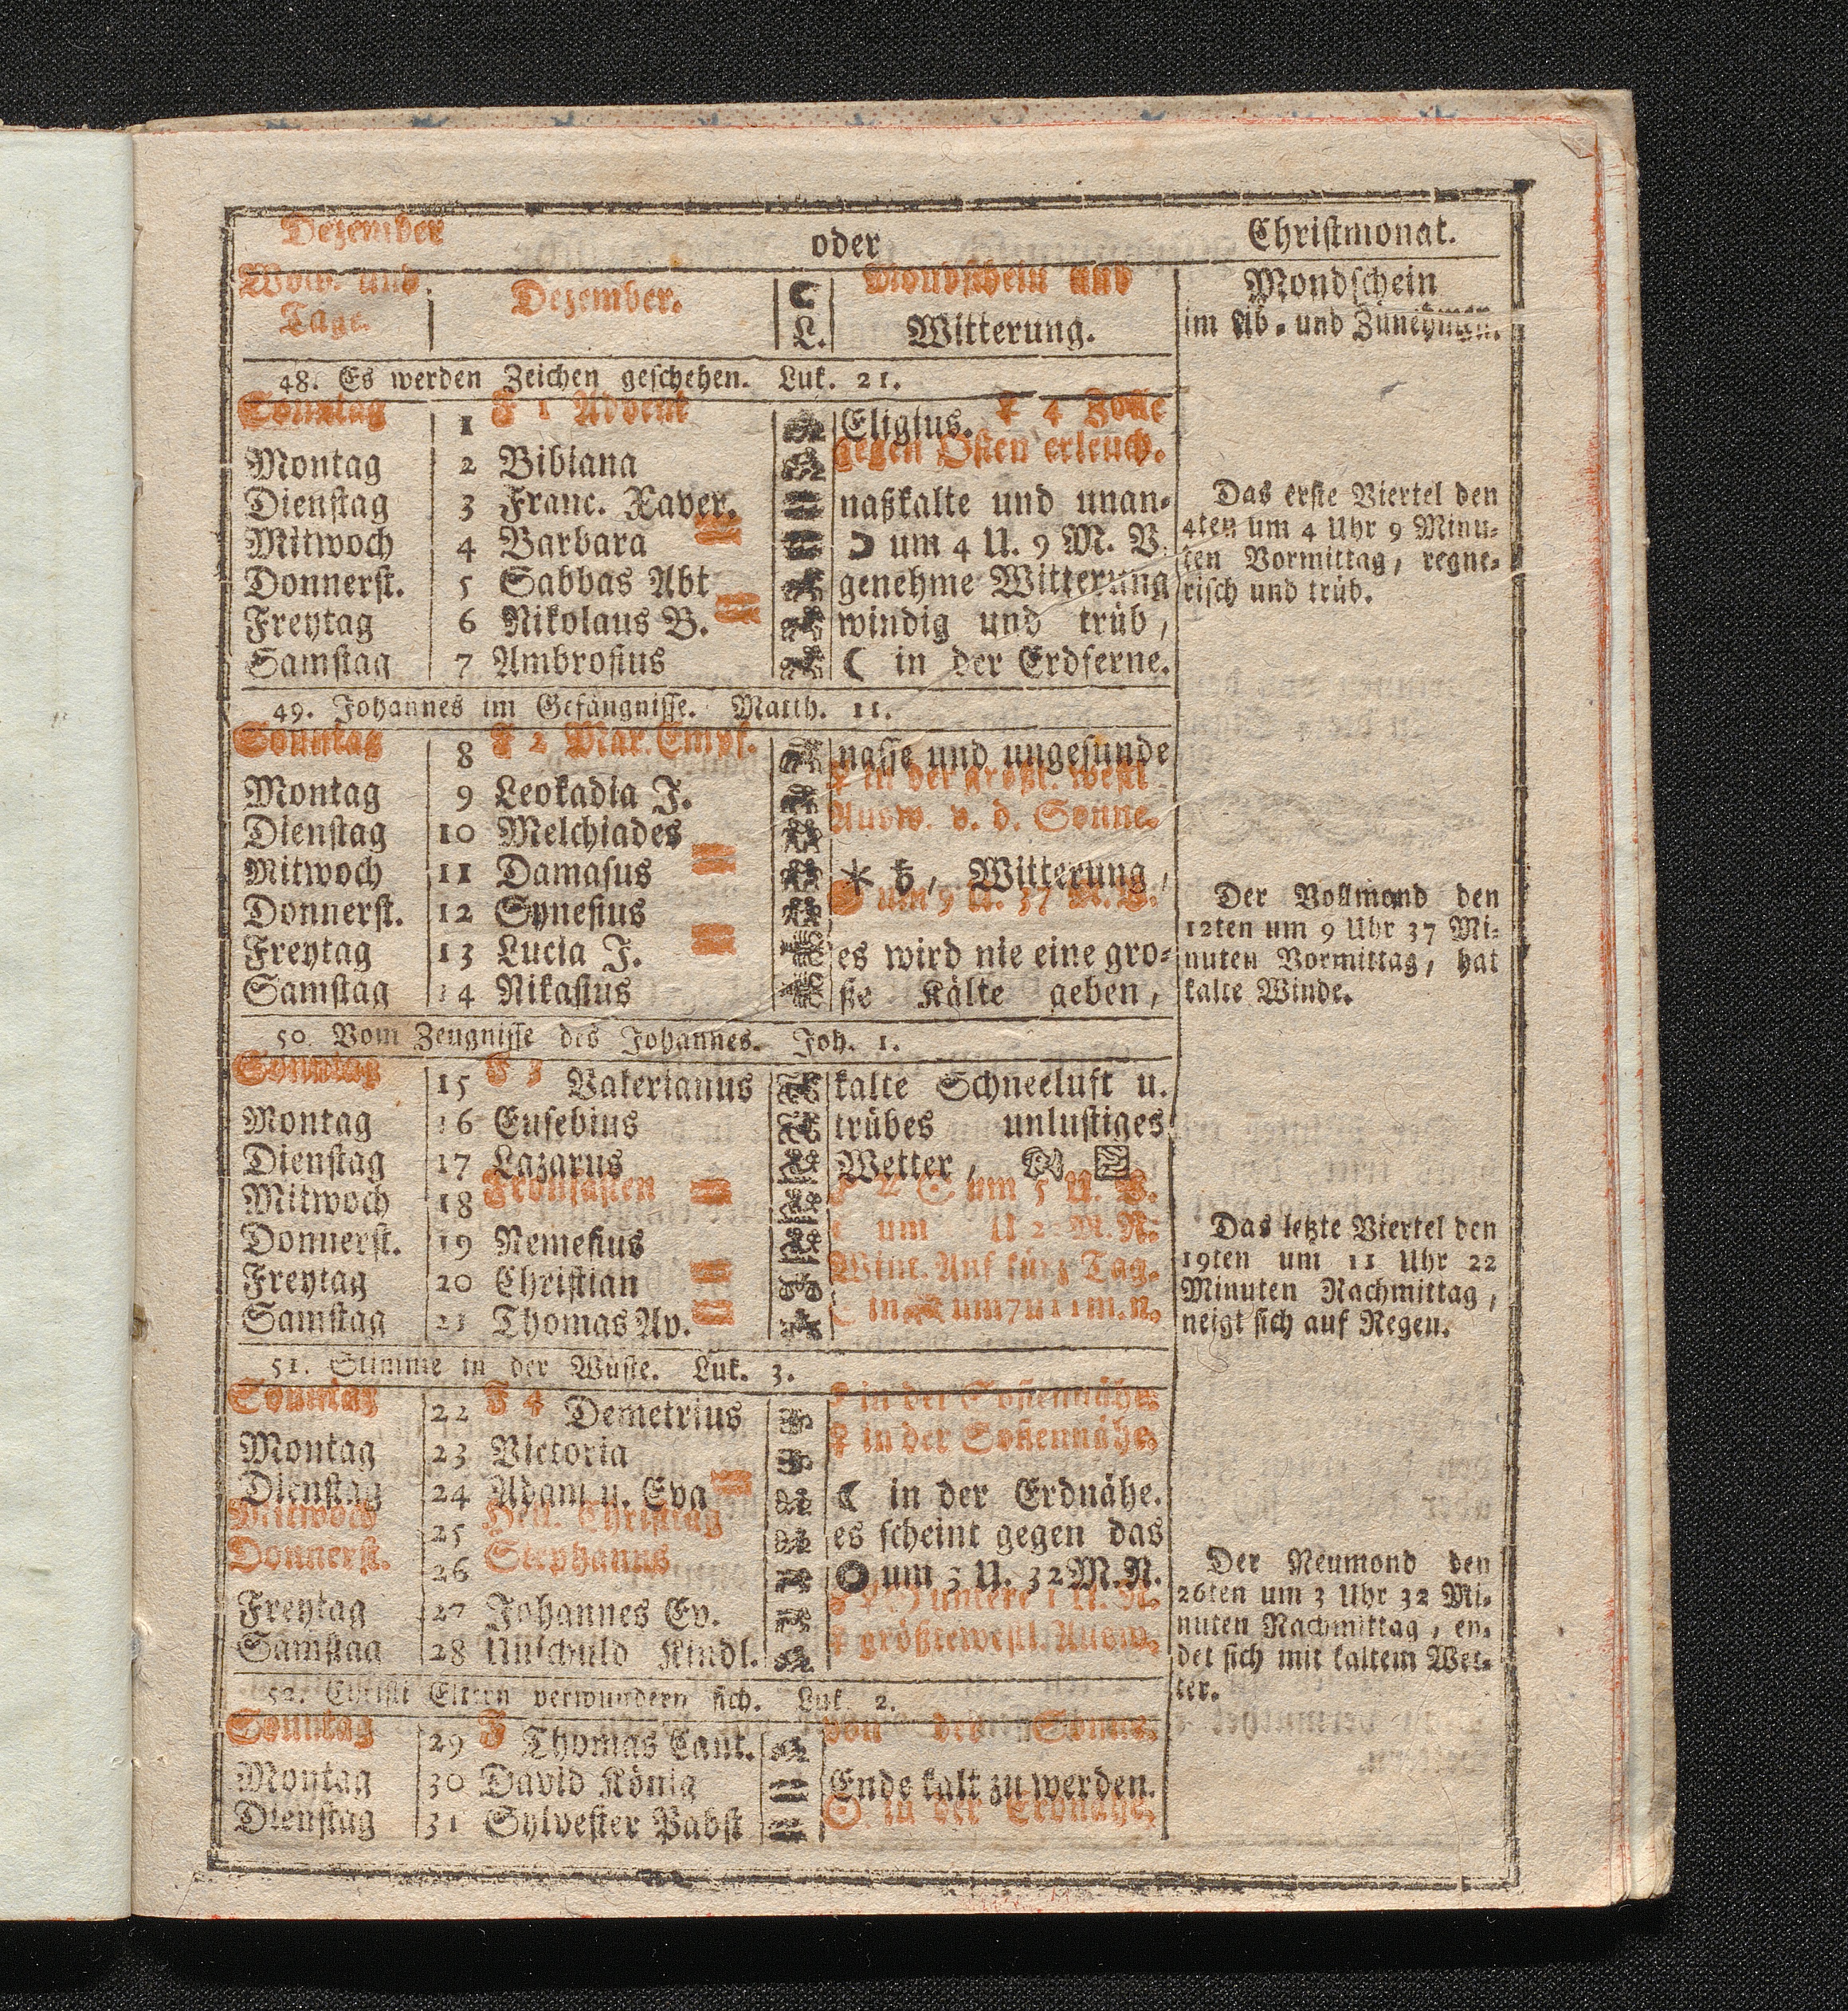 Dezember oder Christmonat.
Woch. und Tage. Dezember. ☾ L. Mondschein und Witterung.
Mondschein
im Ab- und Zunehmen.
48. Es werden Zeichen geschehen. Luk. 21.
Sonntag 1 F 1 Advent Eligius. ♀ 4 Zolle
Montag 2 Bibiana gegen Osten erleuch.
Dienstag 3 Franc. Xaver. naßkalte und unan-
Mitwoch 4 Barbara ☽ um 4 U. 9 M. V.
Donnerst. 5 Sabbas Abt genehme Witterung
Freytag 6 Nikolaus B. windig und trüb,
Samstag 7 Ambrosius ☾ in der Erdferne.
Das erste Viertel den
4ten um 4 Uhr 9 Minu-
ten Vormittag, regne-
risch und trüb.
49. Johannes im Gefängnisse. Matth. 11.
Sonntag 8 F 2 Mar. Empf. nasse und ungesunde
Montag 9 Leokadia J. ♀ in der größt. westl
Dienstag 10 Melchiades Ausw. v. d. Sonne.
Mitwoch 11 Damasus ⚹ ♄, Witterung,
Donnerst. 12 Synesius um 9 U. 37 M. V.
Freytag 13 Lucia J. es wird nie eine gro-
Samstag 14 Nikasius ße Kälte geben,
Der Vollmond den
12ten um 9 Uhr 37 Mi-
nuten Vormittag, hat
kalte Winde.
50. Vom Zeugnisse des Johannes. Joh. 1.
Sonntag 15 F 3 Vakerianus kalte Schneeluft u.
Montag 16 Eusebius trübes unlustiges
Dienstag 17 Lazarus Wetter,
Mitwoch 18 Fronfasten um 5 U. V.
Donnerst. 19 Nemesius um U 2 M. N.
Freytag 20 Christian Wint. Anf kürz Tag.
Samstag 21 Thomas Ap. ☾ in um 7 u 11 m. n.
Das letzte Viertel den
19ten um 11 Uhr 22
Minuten Nachmittag,
neigt sich auf Regen.
51. Stimme in der Wüste. Luk. 3.
Sonntag 22 F 4 Demetrius in der Sonnennähe
Montag 23 Victoria ☿ in der Sonnennähe
Dienstag 24 Adam u. Eva ☾ in der Erdnähe.
Mitwoch 25 Heil. Christtag es scheint gegen das
Donnerst. 26 Stephanus um 3 U. 32 M. N.
Freytag 27 Johannes Ev. untere 1 U. N.
Samstag 28 Unschuld Kindl. ♀ größte westl. Ausw.
Der Neumond den
26ten um 3 Uhr 32 Mi-
nuten Nachmittag, en-
det sich mit kaltem Wet-
ter.
52. Christi Eltern verwundern sich. Luk. 2.
Sonntag 29 F Thomas Cant. von der Sonne.
Montag 30 David König Ende kalt zu werden.
Dienstag 31 Sylvester Pabst ☉ in der Erdnähe.